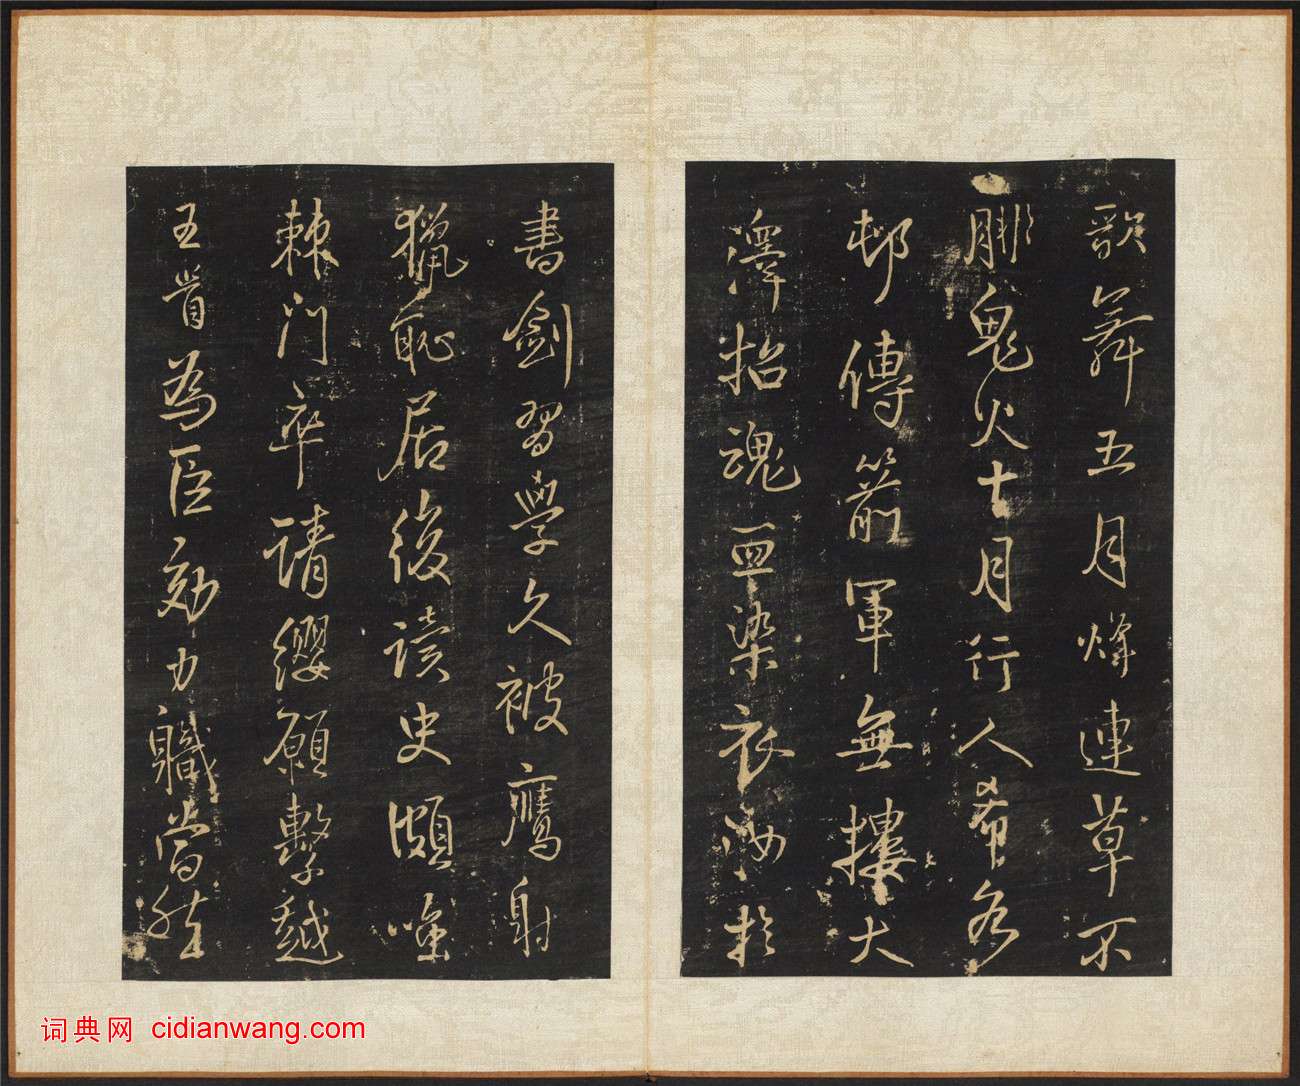 歌舞五月烽連草不
腓鬼火七月行人希各
邨傳箭軍無摟大
澤招魂血染衣汝於
書劍習學久被鷹射
獵恥居後讀史頗嗤
棘門卒請纓願繫越
王首為臣効力職當然
词典网 cidianwang.com